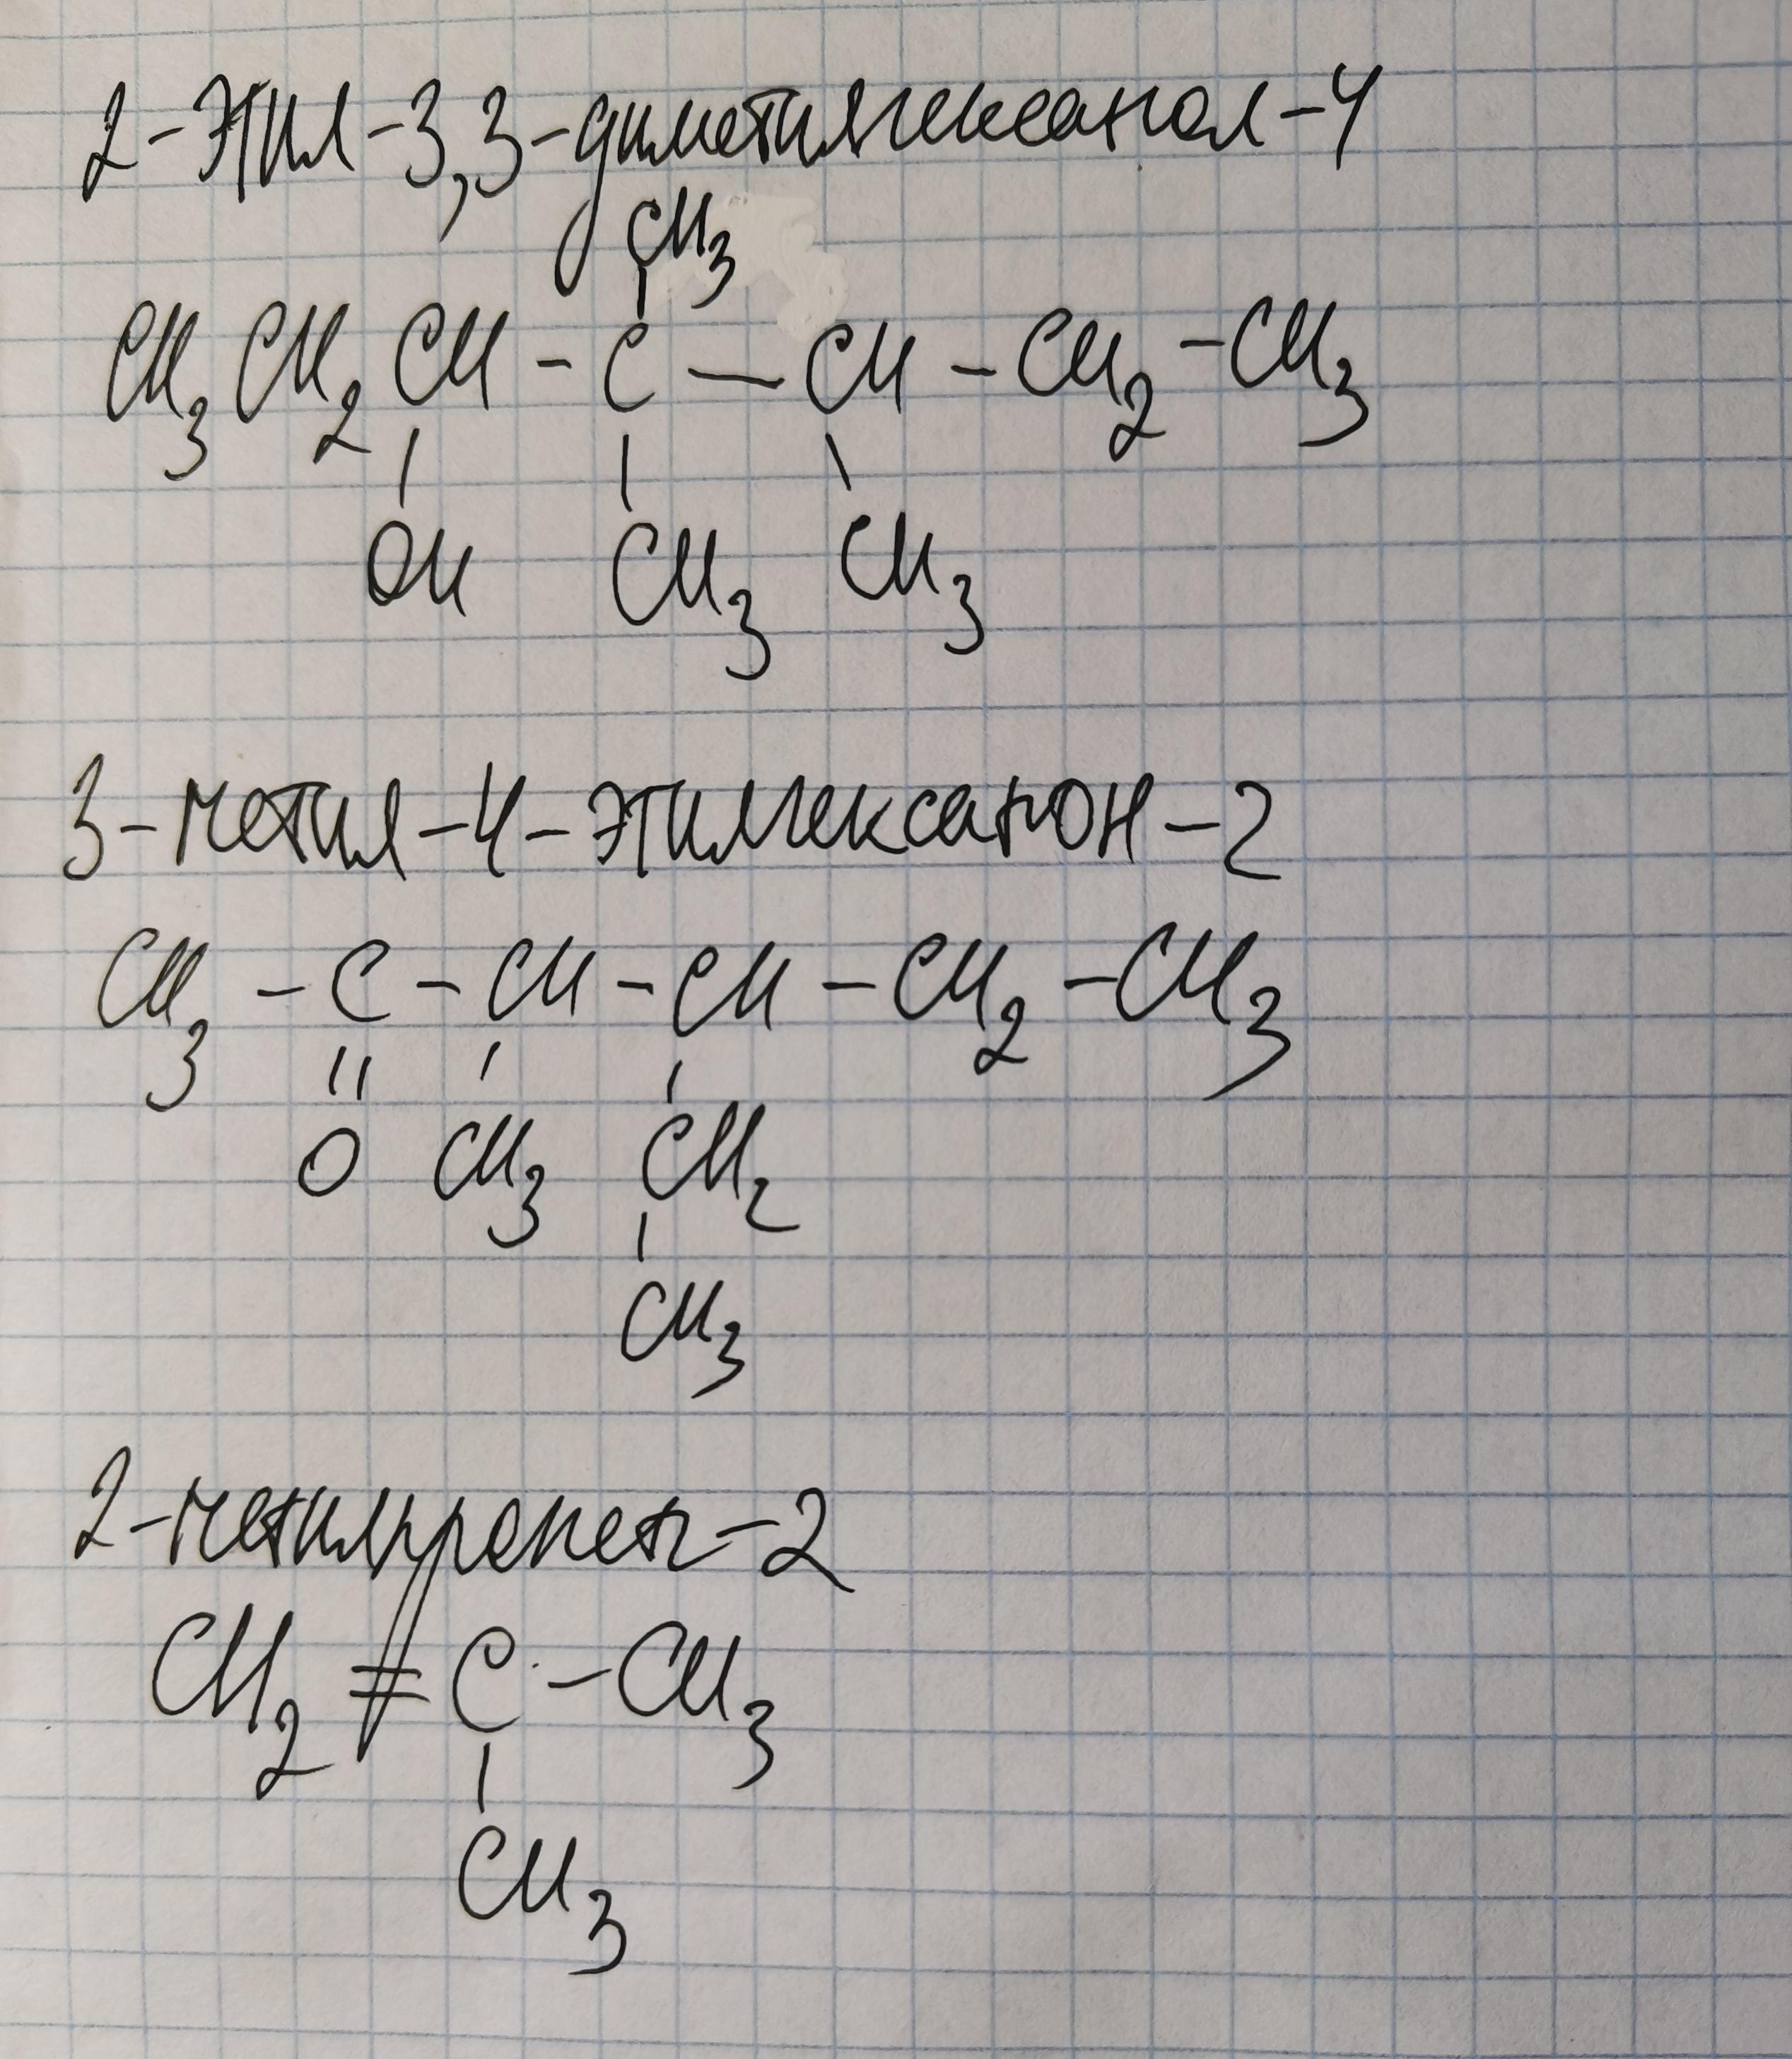 2-этил-3,3-диметилгексанол-4
CH3
CH3 CH2 CH - C — CH - CH2 - CH3
OH CH3 CH3
3-метил-4-этилгексанон-2
CH3 - C - CH - CH - CH2 - CH3
O CH3 CH2
CH3
2-метилпропен-2
CH2 = C - CH3
CH3